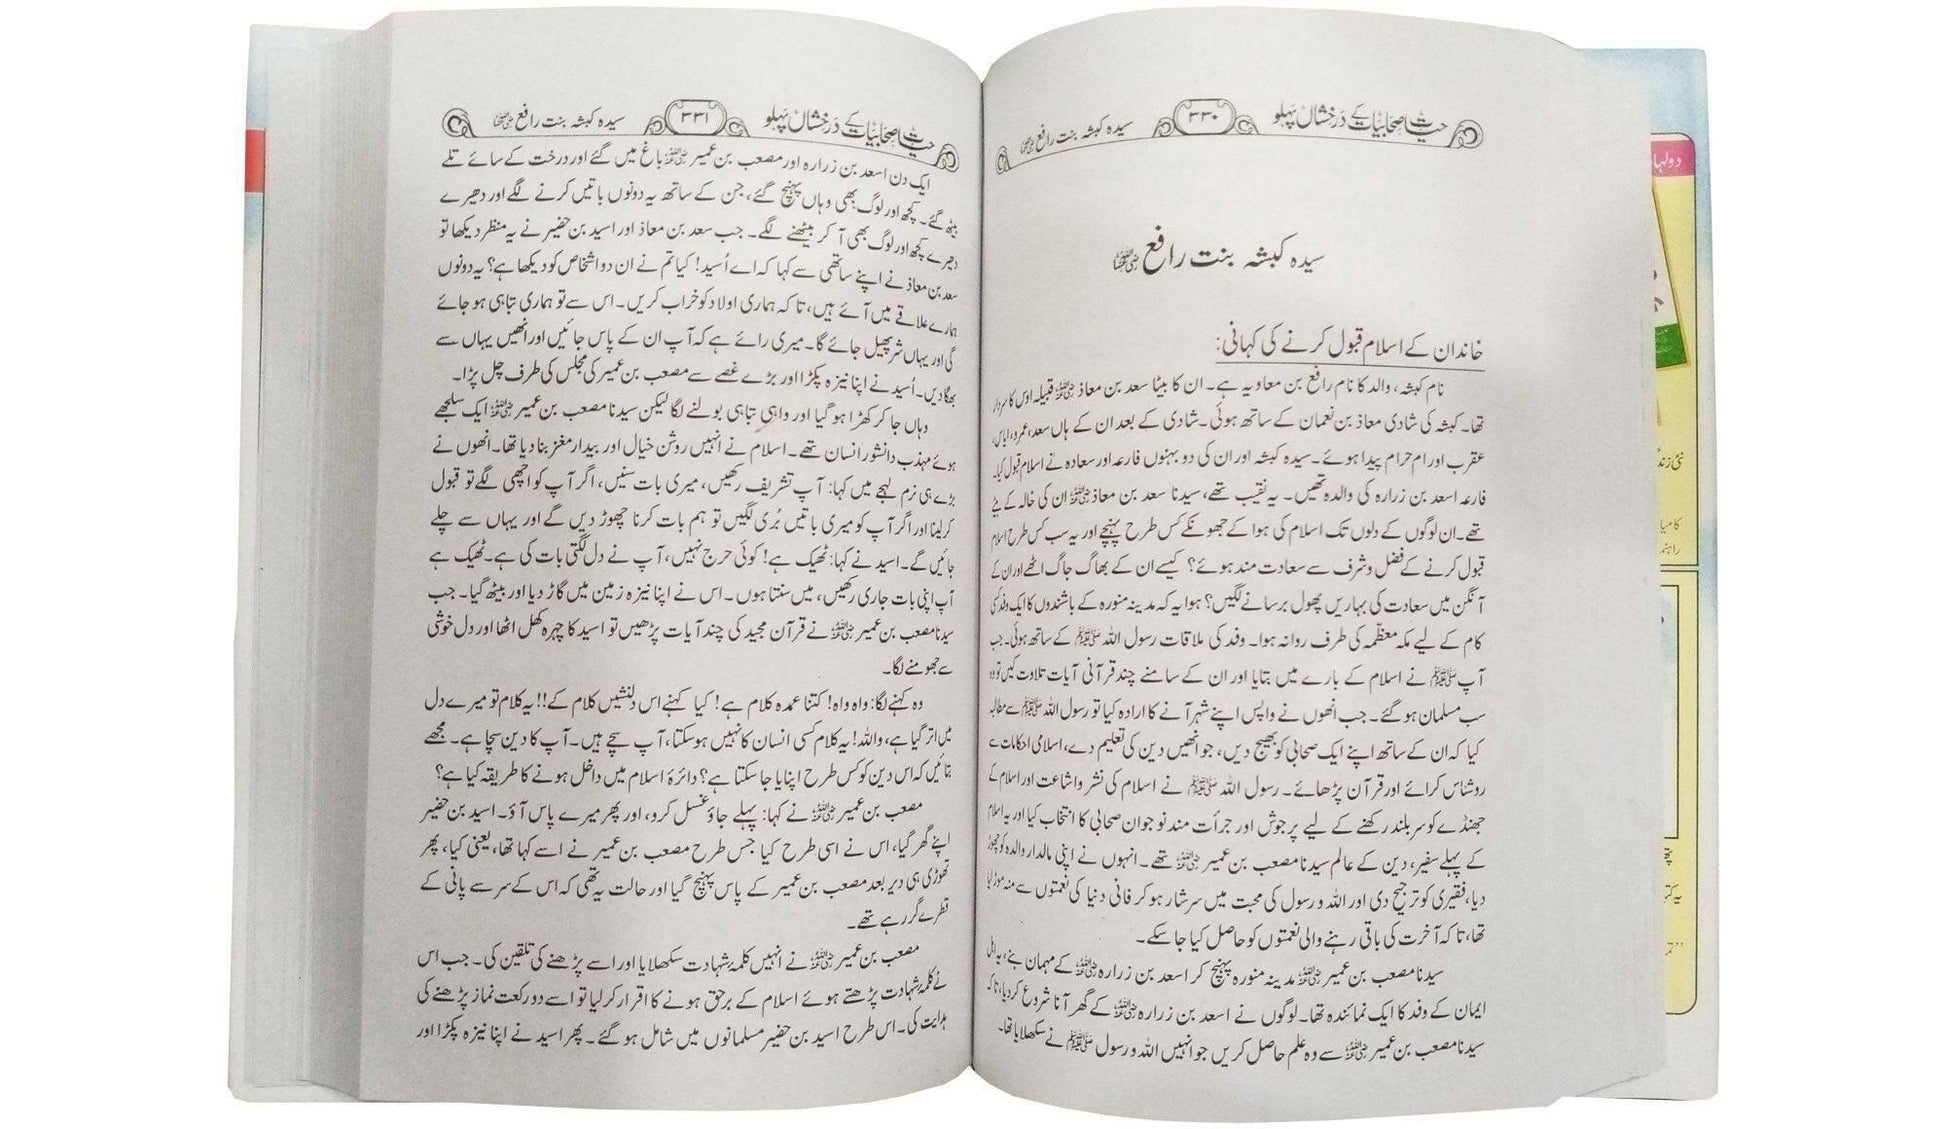 حیات صحابیات کے درخشاں پہلو
۳۳۰
سیدہ کبشہ بنت رافع رضی اللہ عنہا
سیدہ کبشہ بنت رافع رضی اللہ عنہا
خاندان کے اسلام قبول کرنے کی کہانی:
نام کبشہ، والد کا نام رافع بن معاویہ ہے۔ ان کا بیٹا سعد بن معاذ رضی اللہ عنہ قبیلہ اوس کا سردار
تھا۔ کبشہ کی شادی معاذ بن نعمان کے ساتھ ہوئی۔ شادی کے بعد ان کے ہاں سعد، عمرو، ایاس،
عقرب اور ام حرام پیدا ہوئے۔ سیدہ کبشہ اور ان کی دو بہنوں فارعہ اور سعادہ نے اسلام قبول کیا۔
فارعہ اسعد بن زرارہ کی والدہ تھیں۔ یہ نقیب تھے، سیدنا سعد بن معاذ رضی اللہ عنہ ان کی خالہ کے بیٹے
تھے۔ ان لوگوں کے دلوں تک اسلام کی ہوا کے جھونکے کس طرح پہنچے اور یہ سب کس طرح اسلام
قبول کرنے کے فضل و شرف سے سعادت مند ہوئے؟ کیسے ان کے بھاگ جاگ اٹھے اور ان کے
آنگن میں سعادت کی بہاریں پھول برسانے لگیں؟ ہوا یہ کہ مدینہ منورہ کے باشندوں کا ایک وفد کسی
کام کے لیے مکہ معظمہ کی طرف روانہ ہوا۔ وفد کی ملاقات رسول اللہ ﷺ کے ساتھ ہوئی۔ جب
آپ ﷺ نے اسلام کے بارے میں بتایا اور ان کے سامنے چند قرآنی آیات تلاوت کیں تو وہ
سب مسلمان ہو گئے۔ جب انھوں نے واپس اپنے شہر آنے کا ارادہ کیا تو رسول اللہ ﷺ سے مطالبہ
کیا کہ ان کے ساتھ اپنے ایک صحابی کو بھیج دیں، جو انھیں دین کی تعلیم دے، اسلامی احکامات سے
روشناس کرائے اور قرآن پڑھائے۔ رسول اللہ ﷺ نے اسلام کی نشر و اشاعت اور اسلام کے
جھنڈے کو سربلند رکھنے کے لیے پرجوش اور جرأت مند نوجوان صحابی کا انتخاب کیا اور یہ اسلام
کے پہلے سفیر، دین کے عالم سیدنا مصعب بن عمیر رضی اللہ عنہ تھے۔ انہوں نے اپنی مالدار والدہ کو چھوڑ
دیا، فقیری کو ترجیح دی اور اللہ و رسول کی محبت میں سرشار ہو کر فانی دنیا کی نعمتوں سے منہ موڑ لیا
تھا، تاکہ آخرت کی باقی رہنے والی نعمتوں کو حاصل کیا جا سکے۔
سیدنا مصعب بن عمیر رضی اللہ عنہ مدینہ منورہ پہنچ کر اسعد بن زرارہ رضی اللہ عنہ کے مہمان بنے، یہ اہل
ایمان کے وفد کا ایک نمائندہ تھا۔ لوگوں نے اسعد بن زرارہ رضی اللہ عنہ کے گھر آنا شروع کر دیا، تاکہ
سیدنا مصعب بن عمیر رضی اللہ عنہ سے وہ علم حاصل کریں جو انہیں اللہ و رسول ﷺ نے سکھلایا تھا۔
حیات صحابیات کے درخشاں پہلو
۳۳۱
سیدہ کبشہ بنت رافع رضی اللہ عنہا
ایک دن اسعد بن زرارہ اور مصعب بن عمیر رضی اللہ عنہ باغ میں گئے اور درخت کے سائے تلے
بیٹھ گئے۔ کچھ اور لوگ بھی وہاں پہنچ گئے، جن کے ساتھ یہ دونوں باتیں کرنے لگے اور دھیرے
دھیرے کچھ اور لوگ بھی آ کر بیٹھنے لگے۔ جب سعد بن معاذ اور اسید بن حضیر نے یہ منظر دیکھا تو
سعد بن معاذ نے اپنے ساتھی سے کہا کہ اے اُسید! کیا تم نے ان دو اشخاص کو دیکھا ہے؟ یہ دونوں
ہمارے علاقے میں آئے ہیں، تاکہ ہماری اولاد کو خراب کریں۔ اس سے تو ہماری تباہی ہو جائے
گی اور یہاں شر پھیل جائے گا۔ میری رائے ہے کہ آپ ان کے پاس جائیں اور انھیں یہاں سے
بھگا دیں۔ اُسید نے اپنا نیزہ پکڑا اور بڑے غصے سے مصعب بن عمیر کی مجلس کی طرف چل پڑا۔
وہاں جا کر کھڑا ہو گیا اور واہی تباہی بولنے لگا لیکن سیدنا مصعب بن عمیر رضی اللہ عنہ ایک سلجھے
ہوئے مہذب دانشور انسان تھے۔ اسلام نے انہیں روشن خیال اور بیدار مغز بنا دیا تھا۔ انھوں نے
بڑے ہی نرم لہجے میں کہا: آپ تشریف رکھیں، میری بات سنیں، اگر آپ کو اچھی لگے تو قبول
کر لینا اور اگر آپ کو میری باتیں بُری لگیں تو ہم بات کرنا چھوڑ دیں گے اور یہاں سے چلے
جائیں گے۔ اسید نے کہا: ٹھیک ہے! کوئی حرج نہیں، آپ نے دل لگتی بات کی ہے۔ ٹھیک ہے
آپ اپنی بات جاری رکھیں، میں سنتا ہوں۔ اس نے اپنا نیزہ زمین میں گاڑ دیا اور بیٹھ گیا۔ جب
سیدنا مصعب بن عمیر رضی اللہ عنہ نے قرآن مجید کی چند آیات پڑھیں تو اسید کا چہرہ کھل اٹھا اور دل خوشی
سے جھومنے لگا۔
وہ کہنے لگا: واہ واہ! کتنا عمدہ کلام ہے! کیا کہنے اس دلنشیں کلام کے!! یہ کلام تو میرے دل
میں اتر گیا ہے، واللہ! یہ کلام کسی انسان کا نہیں ہو سکتا، آپ سچے ہیں۔ آپ کا دین سچا ہے۔ مجھے
بتائیں کہ اس دین کو کس طرح اپنایا جا سکتا ہے؟ دائرۂ اسلام میں داخل ہونے کا طریقہ کیا ہے؟
مصعب بن عمیر رضی اللہ عنہ نے کہا: پہلے جاؤ غسل کرو، اور پھر میرے پاس آؤ۔ اسید بن حضیر
اپنے گھر گیا، اس نے اسی طرح کیا جس طرح مصعب بن عمیر نے اسے کہا تھا، یعنی کیا، پھر
تھوڑی ہی دیر بعد مصعب بن عمیر کے پاس پہنچ گیا اور حالت یہ تھی کہ اس کے سر سے پانی کے
قطرے گر رہے تھے۔
مصعب بن عمیر رضی اللہ عنہ نے انہیں کلمۂ شہادت سکھلایا اور اسے پڑھنے کی تلقین کی۔ جب اس
نے کلمۂ شہادت پڑھتے ہوئے اسلام کے برحق ہونے کا اقرار کر لیا تو اسے دو رکعت نماز پڑھنے کی
ہدایت کی۔ اس طرح اسید بن حضیر مسلمانوں میں شامل ہو گئے۔ پھر اسید نے اپنا نیزہ پکڑا اور
دولہا
نئی زندگی
کامیا
راہنما